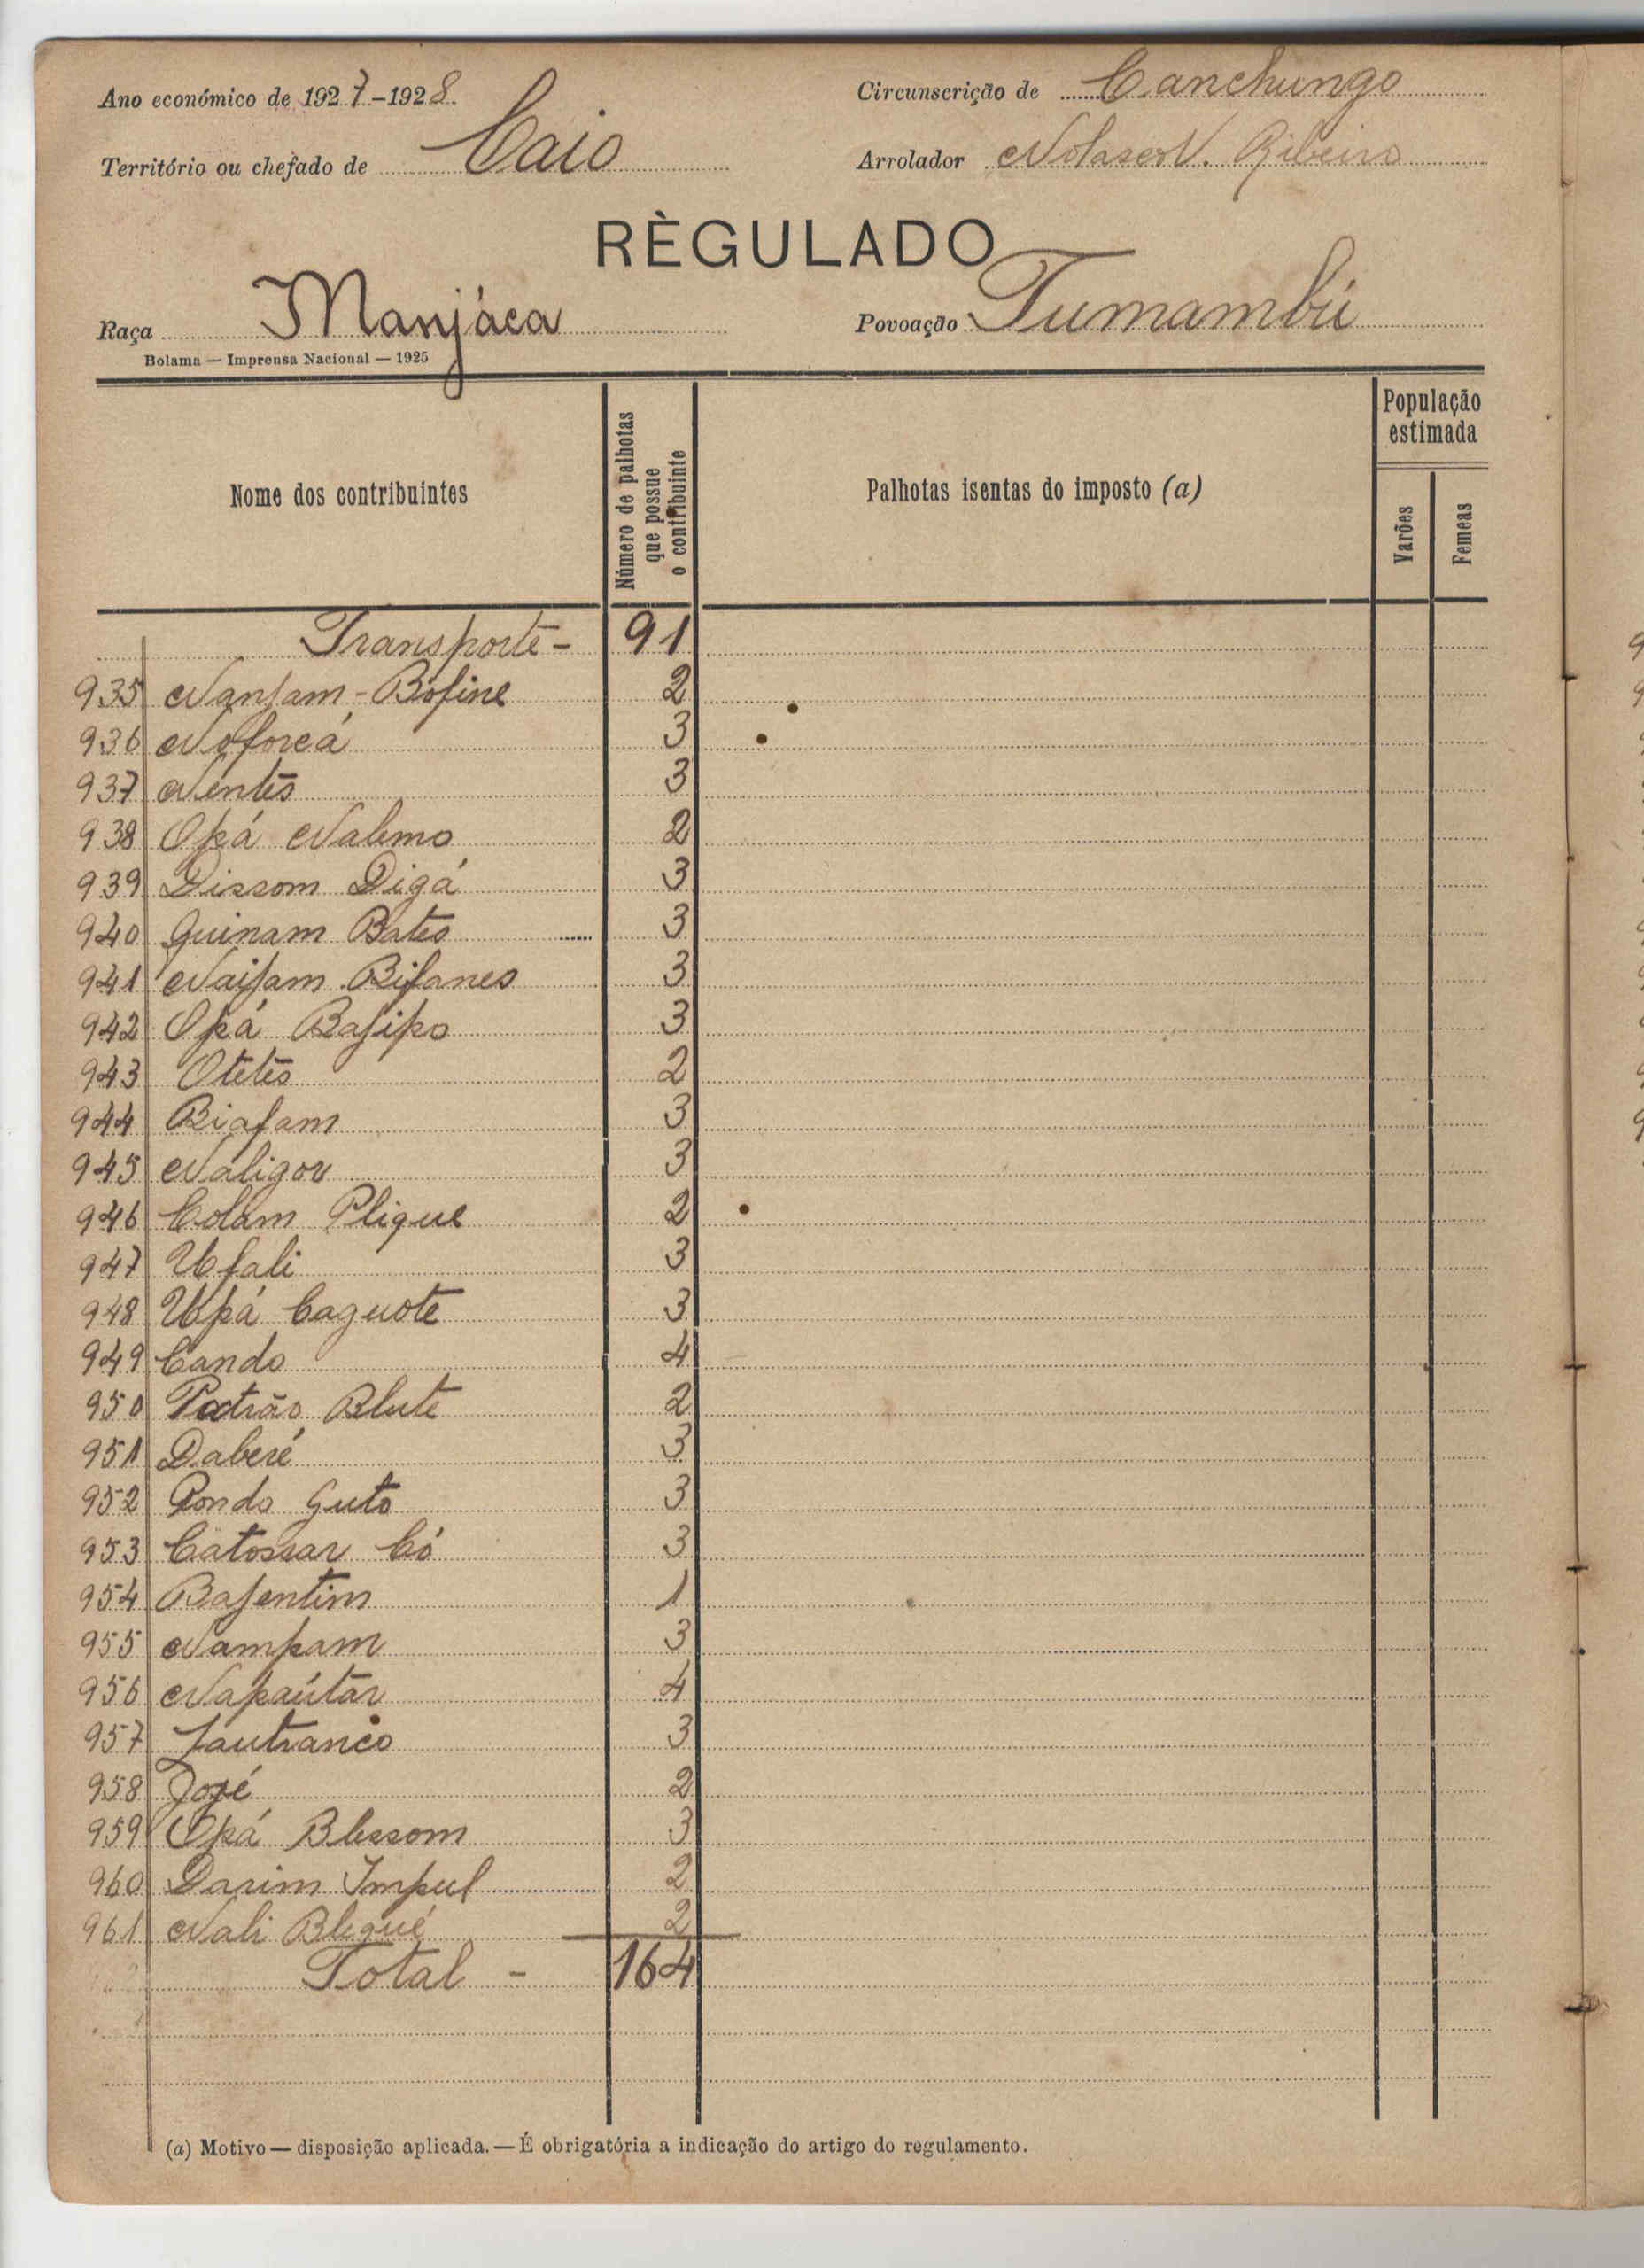 Ano económico de 1927-1928
Circunscrição de Canchungo
Território ou chefado de Caio
Arrolador Nolasco V. Ribeiro
RÈGULADO
Raça Manjáca
Povoação Tumambú
Bolama — Imprensa Nacional — 1925
Nome dos contribuintes
Número de palhotas que possue o contribuinte
Palhotas isentas do imposto (a)
População estimada
Varões
Femeas
Transporte - 91
935 Nanjam - Bofine 2
936 Noforcá 3
937 Nentes 3
938 Opá Nalemo 2
939 Dissom Digá 3
940 Guinam Bates 3
941 Naifam Bifanes 3
942 Opá Bafipo 3
943 Otetes 2
944 Biafam 3
945 Naligou 3
946 Colam Plique 2
947 Ufali 3
948 Upá Caguote 3
949 Cando 4
950 Patrão Blute 2
951 Daberé 3
952 Pondo Guto 3
953 Catossar Có 3
954 Bajentim 1
955 Nampam 3
956 Napaútar 4
957 Jautranco 3
958 José 2
959 Opá Blessom 3
960 Darim Impul 2
961 Nali Blequé 2
Total - 164
(a) Motivo — disposição aplicada. — É obrigatória a indicação do artigo do regulamento.